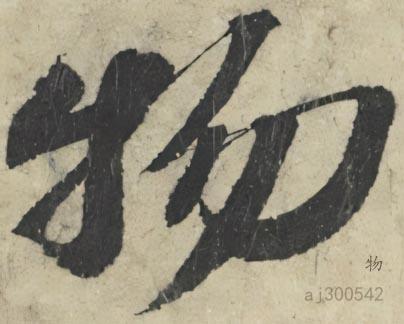 物
物
aj300542